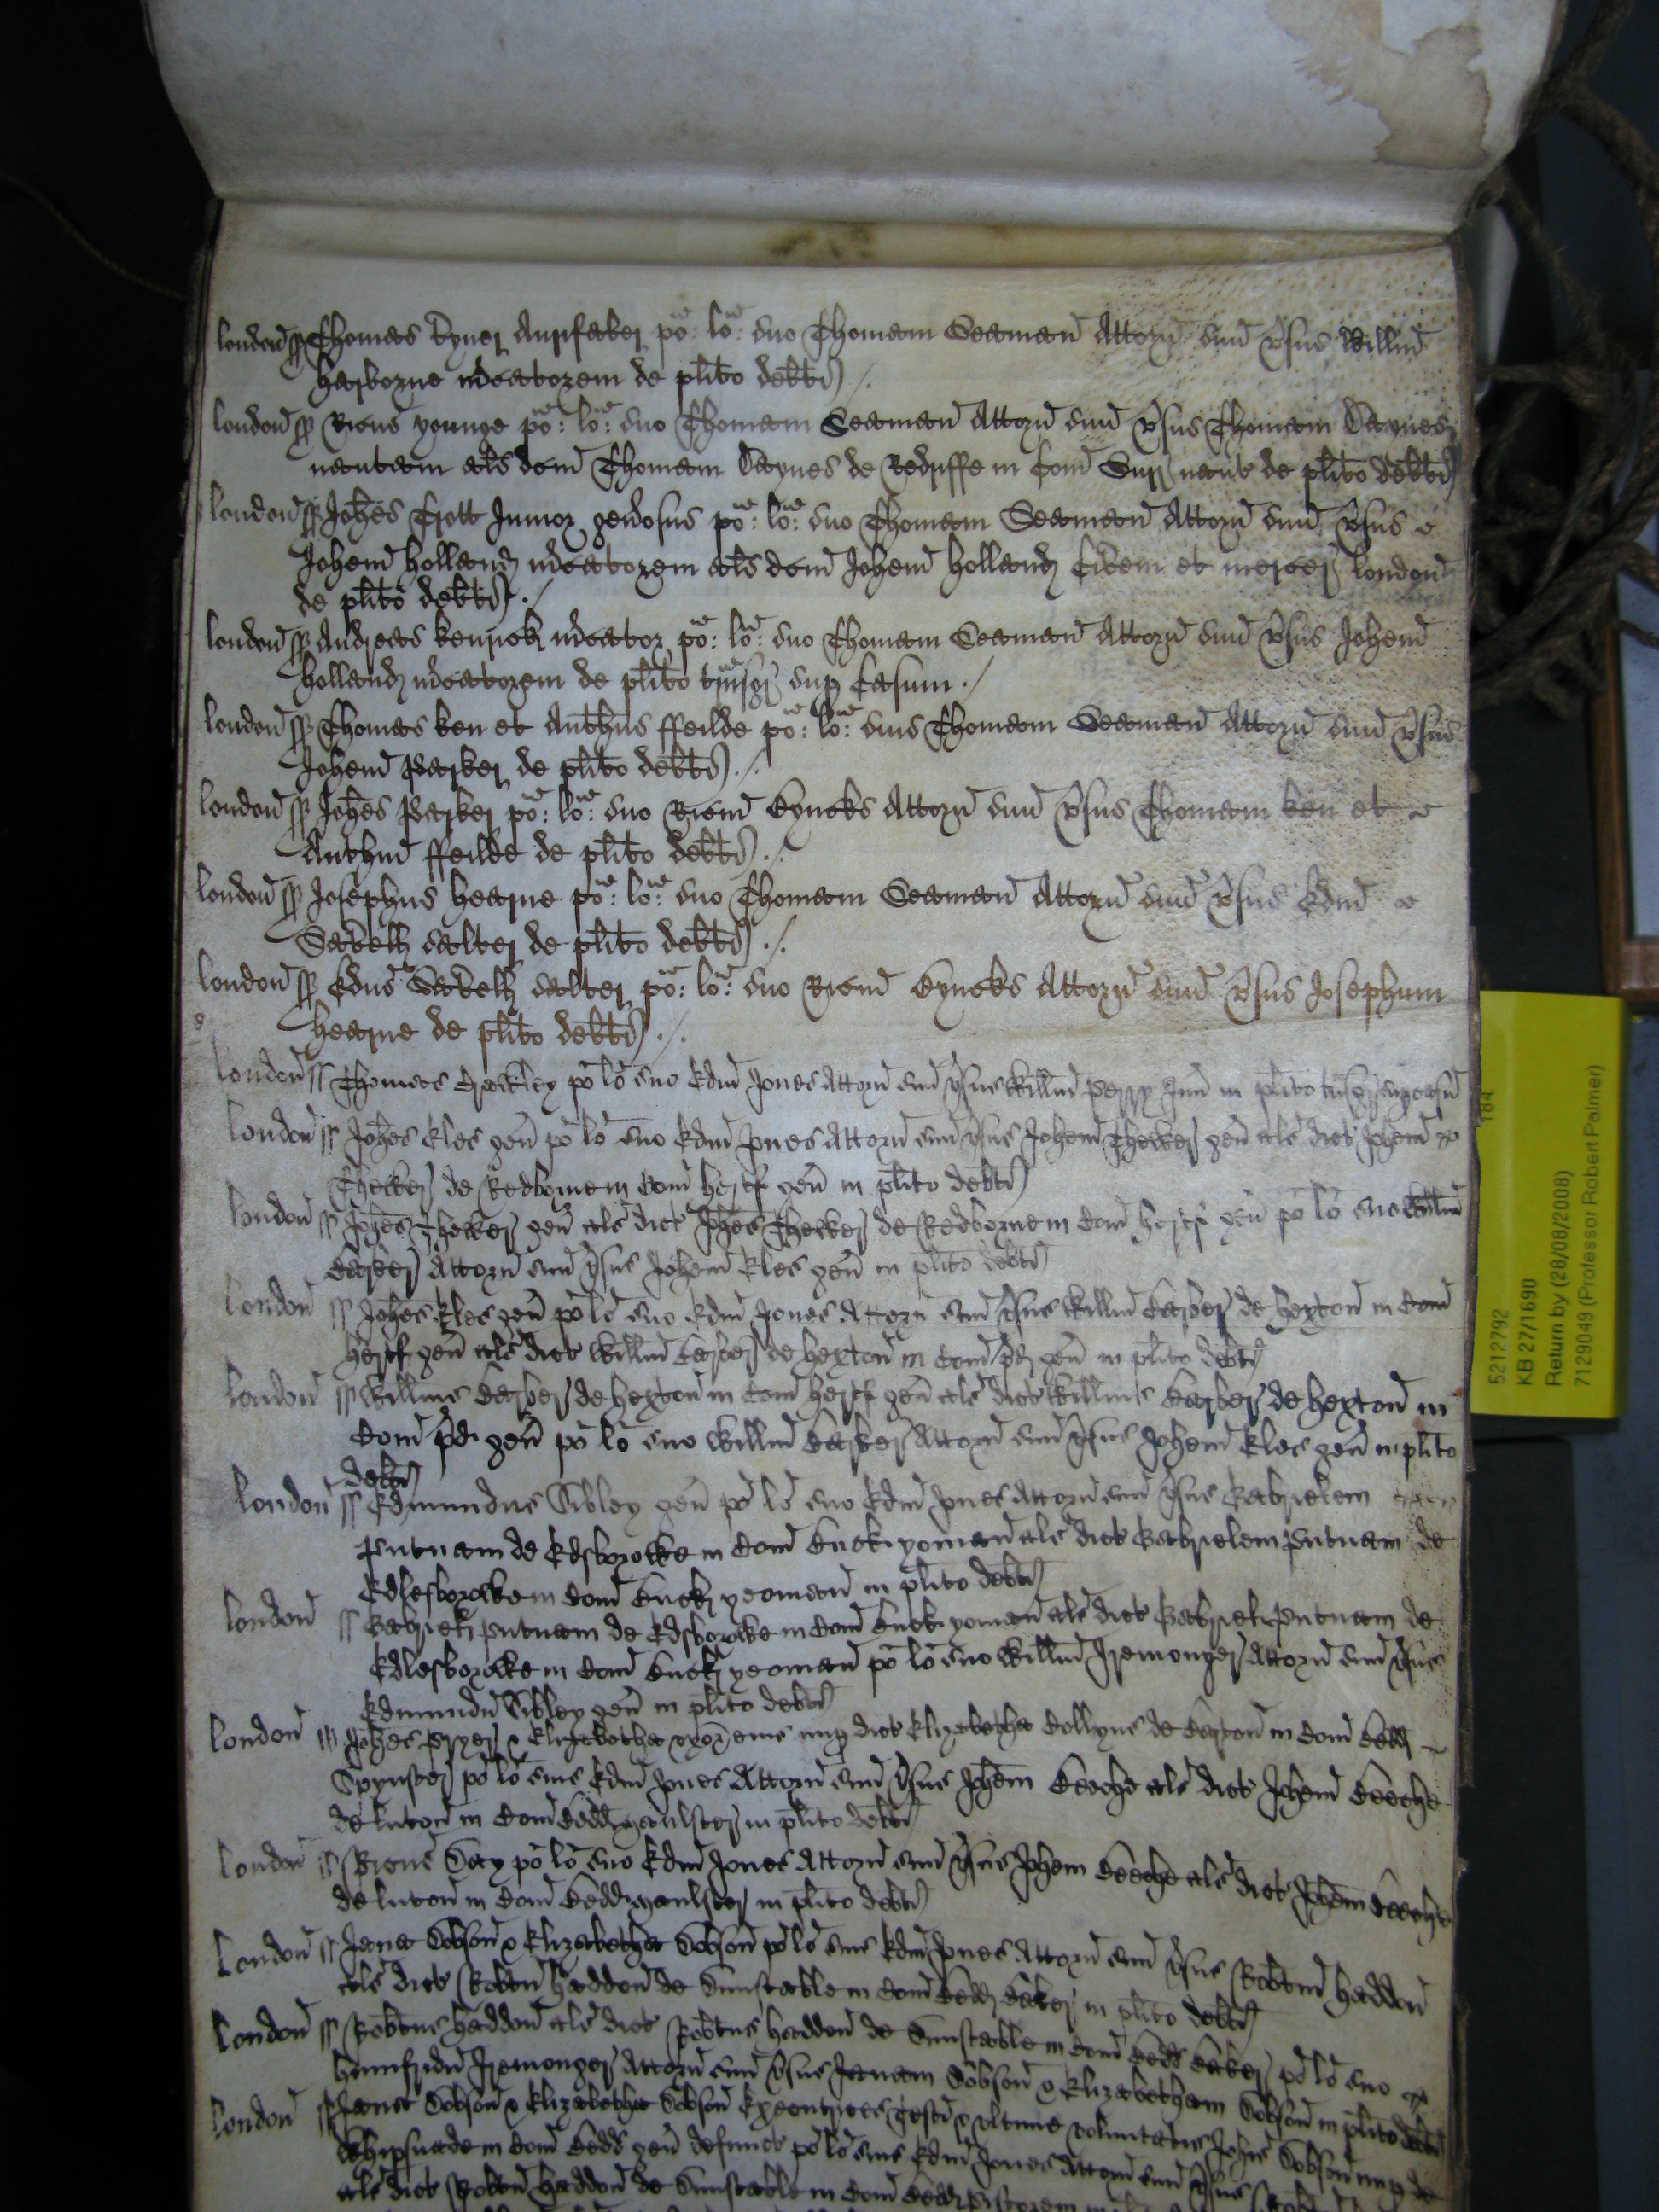 london ss Thomas Tyner Aurifaber po: lo: suo Thomam Seaman Attorn suu vsus Willm
harborne mcatorem de plito debti
london ss Ricus younge po: lo: suo Thomam Seaman Attorn suu vsus Thomam Haynes
nautam als dcm Thomam Haynes de Redriffe in Com Surr naut de plito debti
london ss Johes Trott Junior generosus po: lo: suo Thomam Seaman Attorn suu vsus
Johem Holland mcatorem als dcm Johem Holland Civem et mercer london
de plito debti
london ss Andreas kenrick mcator po: lo: suo Thomam Seaman Attorn suu vsus Johem
Holland mcatorem de plito transgr sup Casum
london ss Thomas ken et Anthus ffeilde po: lo: suis Thomam Seaman Attorn suu vsus
Johem Parker de plito debti
london ss Johes Parker po: lo: suo Ricm Hyncks Attorn suu vsus Thomam ken et
Anthm ffeilde de plito debti
london ss Josephus hearne po: lo: suo Thomam Seaman Attorn suu vsus Edm
Savell salter de plito debti
london ss Edus Savell salter po: lo: suo Ricm Hyncks Attorn suu vsus Josephum
hearne de plito debti
london ss Thomas po lo suo Edm Jones Attorn suu vsus Willm Perry Jun in plito sup casu
london ss Johes Eles gen po lo suo Edm Jones Attorn suu vsus Johem Thecker gen als dict Johem
Thecker de Redborne in Com hertf gen in plito debti
london ss Johes Thecker gen als dict Johes Thecker de Redborne in Com hertf gen po lo suo Willm
Barber Attorn suu vsus Johem Eles gen in plito debti
london ss Johes Eles gen po lo suo Edm Jones Attorn suu vsus Willm Barber de hexton in Com
hertf gen als dict Willm Barber de hexton in Com pd gen in plito debti
london ss Willms Barber de hexton in Com hertf gen als dict Willms Barber de hexton in
Com pd gen po lo suo Willm Barber Attorn suu vsus Johem Eles gen in plito
debti
london ss Edmundus Sibley gen po lo suo Edm Jones Attorn suu vsus Gabrielem
Putnam de Edsborocke in Com Buck yoman als dict Gabrielem Putnam de
Edlesborocke in Com Buck yeoman in plito debti
london ss Gabriell Putnam de Edsborocke in Com Buck yoman als dict Gabriell Putnam de
Edlesborocke in Com Buck yeoman po lo suo Willm Iremonger Attorn suu vsus
Edmundu Sibley gen in plito debti
london ss Johes Pryer & Elizabetha uxor eius nup dict Elizabetha Collyns de in Com Bedd
Spynster po lo suis Edm Jones Attorn suu vsus Johem Beeche als dict Johem Beeche
de luton in Com Bedd in plito debti
london ss Ricus Say po lo suo Edm Jones Attorn suu vsus Johem Beeche als dict Johem Beeche
de luton in Com Bedd in plito debti
london ss Jana Dobson & Elizabetha Dobson po lo suis Edm Jones Attorn suu vsus Robtum haddon
als dict Robtum haddon de Dunstable in Com Bedd Baker in plito debti
london ss Robtus haddon als dict Robtus haddon de Dunstable in Com Bedd Baker po lo suo
humfridu Iremonger Attorn suu vsus Janam Dobson & Elizabetham Dobson in plito debti
london ss Jana Dobson & Elizabetha Dobson Executrices Testi & ultime voluntatis Johis Dobson nup de
Whipsnade in Com Bedd gen defunct po lo suis Edm Jones Attorn suu vsus
als dict Robtum haddon de Dunstable in Com Bedd Pistorem
184
5212792
KB 27/1690
Return by (28/08/2008)
7129049 (Professor Robert Palmer)